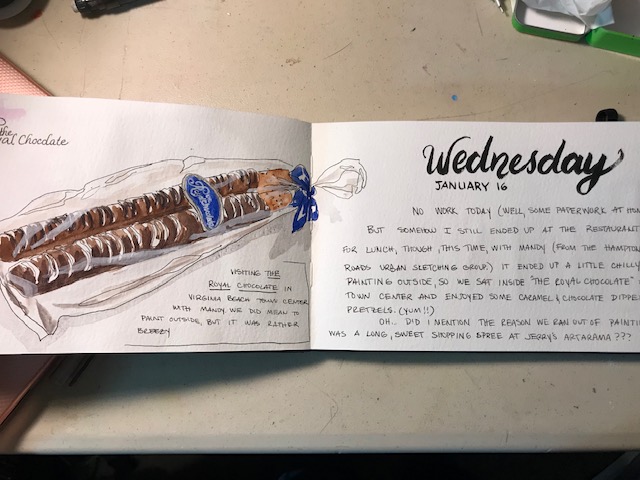 the
al Chocolate
VISITING THE
ROYAL CHOCOLATE IN
VIRGINIA BEACH TOWN CENTER
WITH MANDY. WE DID MEAN TO
PAINT OUTSIDE, BUT IT WAS RATHER
BREEZY
Wednesday
JANUARY 16
NO WORK TODAY (WELL, SOME PAPERWORK AT HOM
BUT SOMEHOW I STILL ENDED UP AT THE RESTAURANT
FOR LUNCH, THOUGH, THIS TIME, WITH MANDY (FROM THE HAMPTON
ROADS URBAN SKETCHING GROUP.) IT ENDED UP A LITTLE CHILLY
PAINTING OUTSIDE, SO WE SAT INSIDE "THE ROYAL CHOCOLATE"
TOWN CENTER AND ENJOYED SOME CARAMEL & CHOCOLATE DIPPE
PRETZELS. (YUM!!)
OH.. DID I MENTION THE REASON WE RAN OUT OF PAINTIN
WAS A LONG, SWEET SHOPPING SPREE AT JERRY'S ARTARAMA???